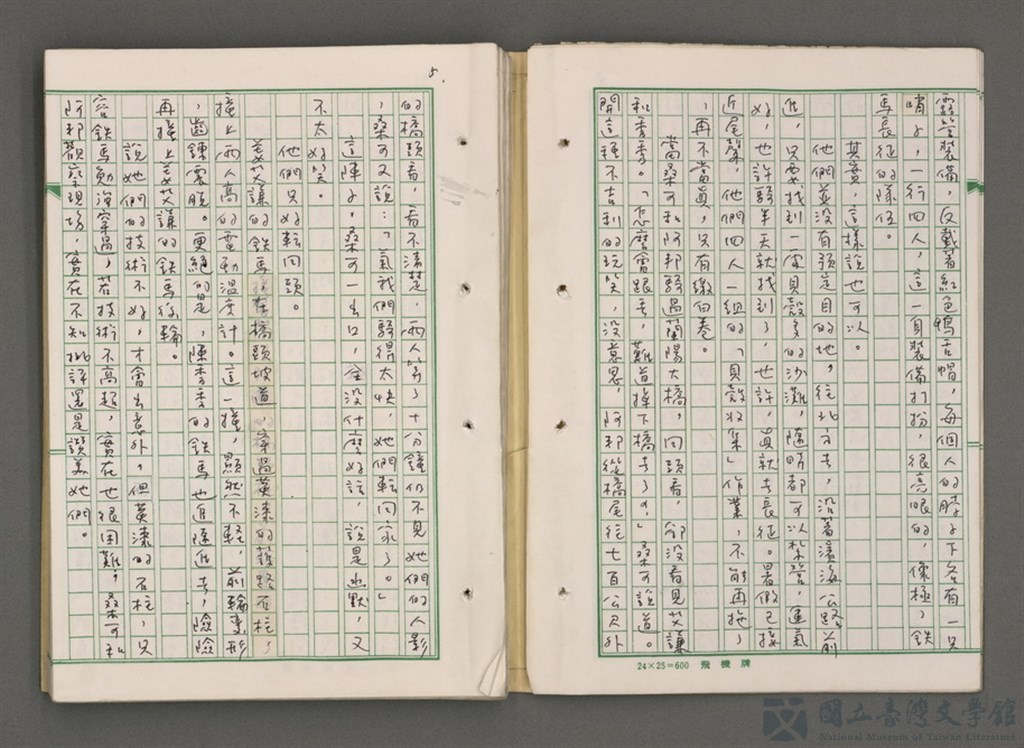 霧笠裝備，反戴著紅色鴨舌帽，每個人的脖子下各有一只
哨子，一行四人，這一身裝備打扮，很亮眼的，像極，鐵
馬長征的隊伍。
其實，這樣說也可以。
他們並沒有預定目的地，往北方去，沿著濱海公路前
進，只要找到一處貝殼多的沙灘，隨時都可以紮營，運氣
好，也許騎半天就找到了，也許，真就去長征。暑假已接
近尾聲，他們四人一組的「貝殼收集」作業，不能再拖了
，再不當真，只有繳白卷。
當桑可和阿邦騎過蘭陽大橋，回頭看，卻沒看見艾謙
和季季。「怎麼會跟丟，難道摔下橋去了？」桑可說道。
開這種不吉利的玩笑，沒意思，阿邦從橋尾往七百公尺外
24×25=600 飛機牌
5.
的橋頭看，看不清楚，兩人等了十分鐘仍不見她們的人影
，桑可又說：「氣我們騎得太快，她們轉回家了。」
這陣子，桑可一出口，全沒什麼好話，說是幽默，又
不太好笑。
他們只好轉回頭。
姜艾謙的鐵馬，在橋頭坡道，穿過黃漆的護路石柱，
撞上兩人高的電動溫度計。這一撞，顯然不輕，前輪變形
，齒鍊震脫。更絕的是，陳季季的鐵馬也追隨進去，險險
再撞上姜艾謙的鐵馬後輪。
說她們的技術不好，才會出意外，但黃漆的石柱，只
容鐵馬勉強穿過，若技術不高超，實在也很困難，桑可和
阿邦觀察現場，實在不知批評還是讚美她們。
國立臺灣文學館
National Museum of Taiwan Literature